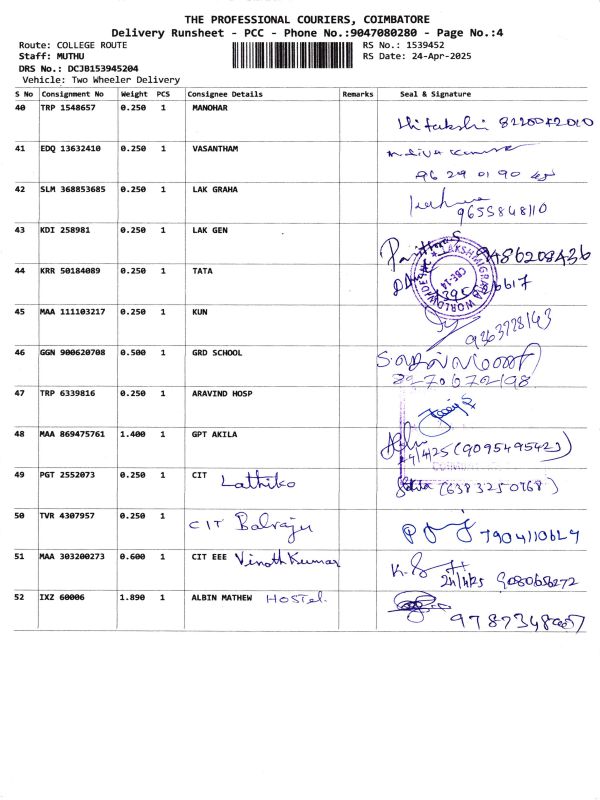 THE PROFESSIONAL COURIERS, COIMBATORE
Delivery Runsheet - PCC - Phone No.:9047080280 - Page No.:4
Route: COLLEGE ROUTE RS No.: 1539452
Staff: MUTHU RS Date: 24-Apr-2025
DRS No.: DCJB153945204
Vehicle: Two Wheeler Delivery
S No Consignment No Weight PCS Consignee Details Remarks Seal & Signature
40 TRP 1548657 0.250 1 MANOHAR
41 EDQ 13632410 0.250 1 VASANTHAM
96 29 01 90 45
42 SLM 368853685 0.250 1 LAK GRAHA
9655848110
43 KDI 258981 0.250 1 LAK GEN
9486208436
44 KRR 50184089 0.250 1 TATA
45 MAA 111103217 0.250 1 KUN
9363728143
46 GGN 900620708 0.500 1 GRD SCHOOL
8270672198
47 TRP 6339816 0.250 1 ARAVIND HOSP
48 MAA 869475761 1.400 1 GPT AKILA
24/4/25 (9095495423)
49 PGT 2552073 0.250 1 CIT Lathika (6383250768)
50 TVR 4307957 0.250 1 CIT Balraju 7904110624
51 MAA 303200273 0.600 1 CIT EEE Vinoth Kumar
24/4/25 9080656272
52 IXZ 60006 1.890 1 ALBIN MATHEW HOSTEL